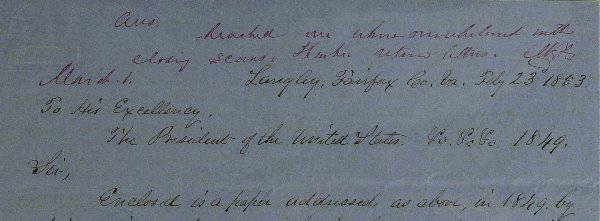 Ans
reached me when overwhelmed with
closing scenes. Thanks return letters.
March 1. Langley, Fairfax Co. Va. Feby 23 1853
To His Excellency,
The President of the United States. &c. &c. &c. 1849.
Sir,
Enclosed is a paper addressed as above, in 1849, by